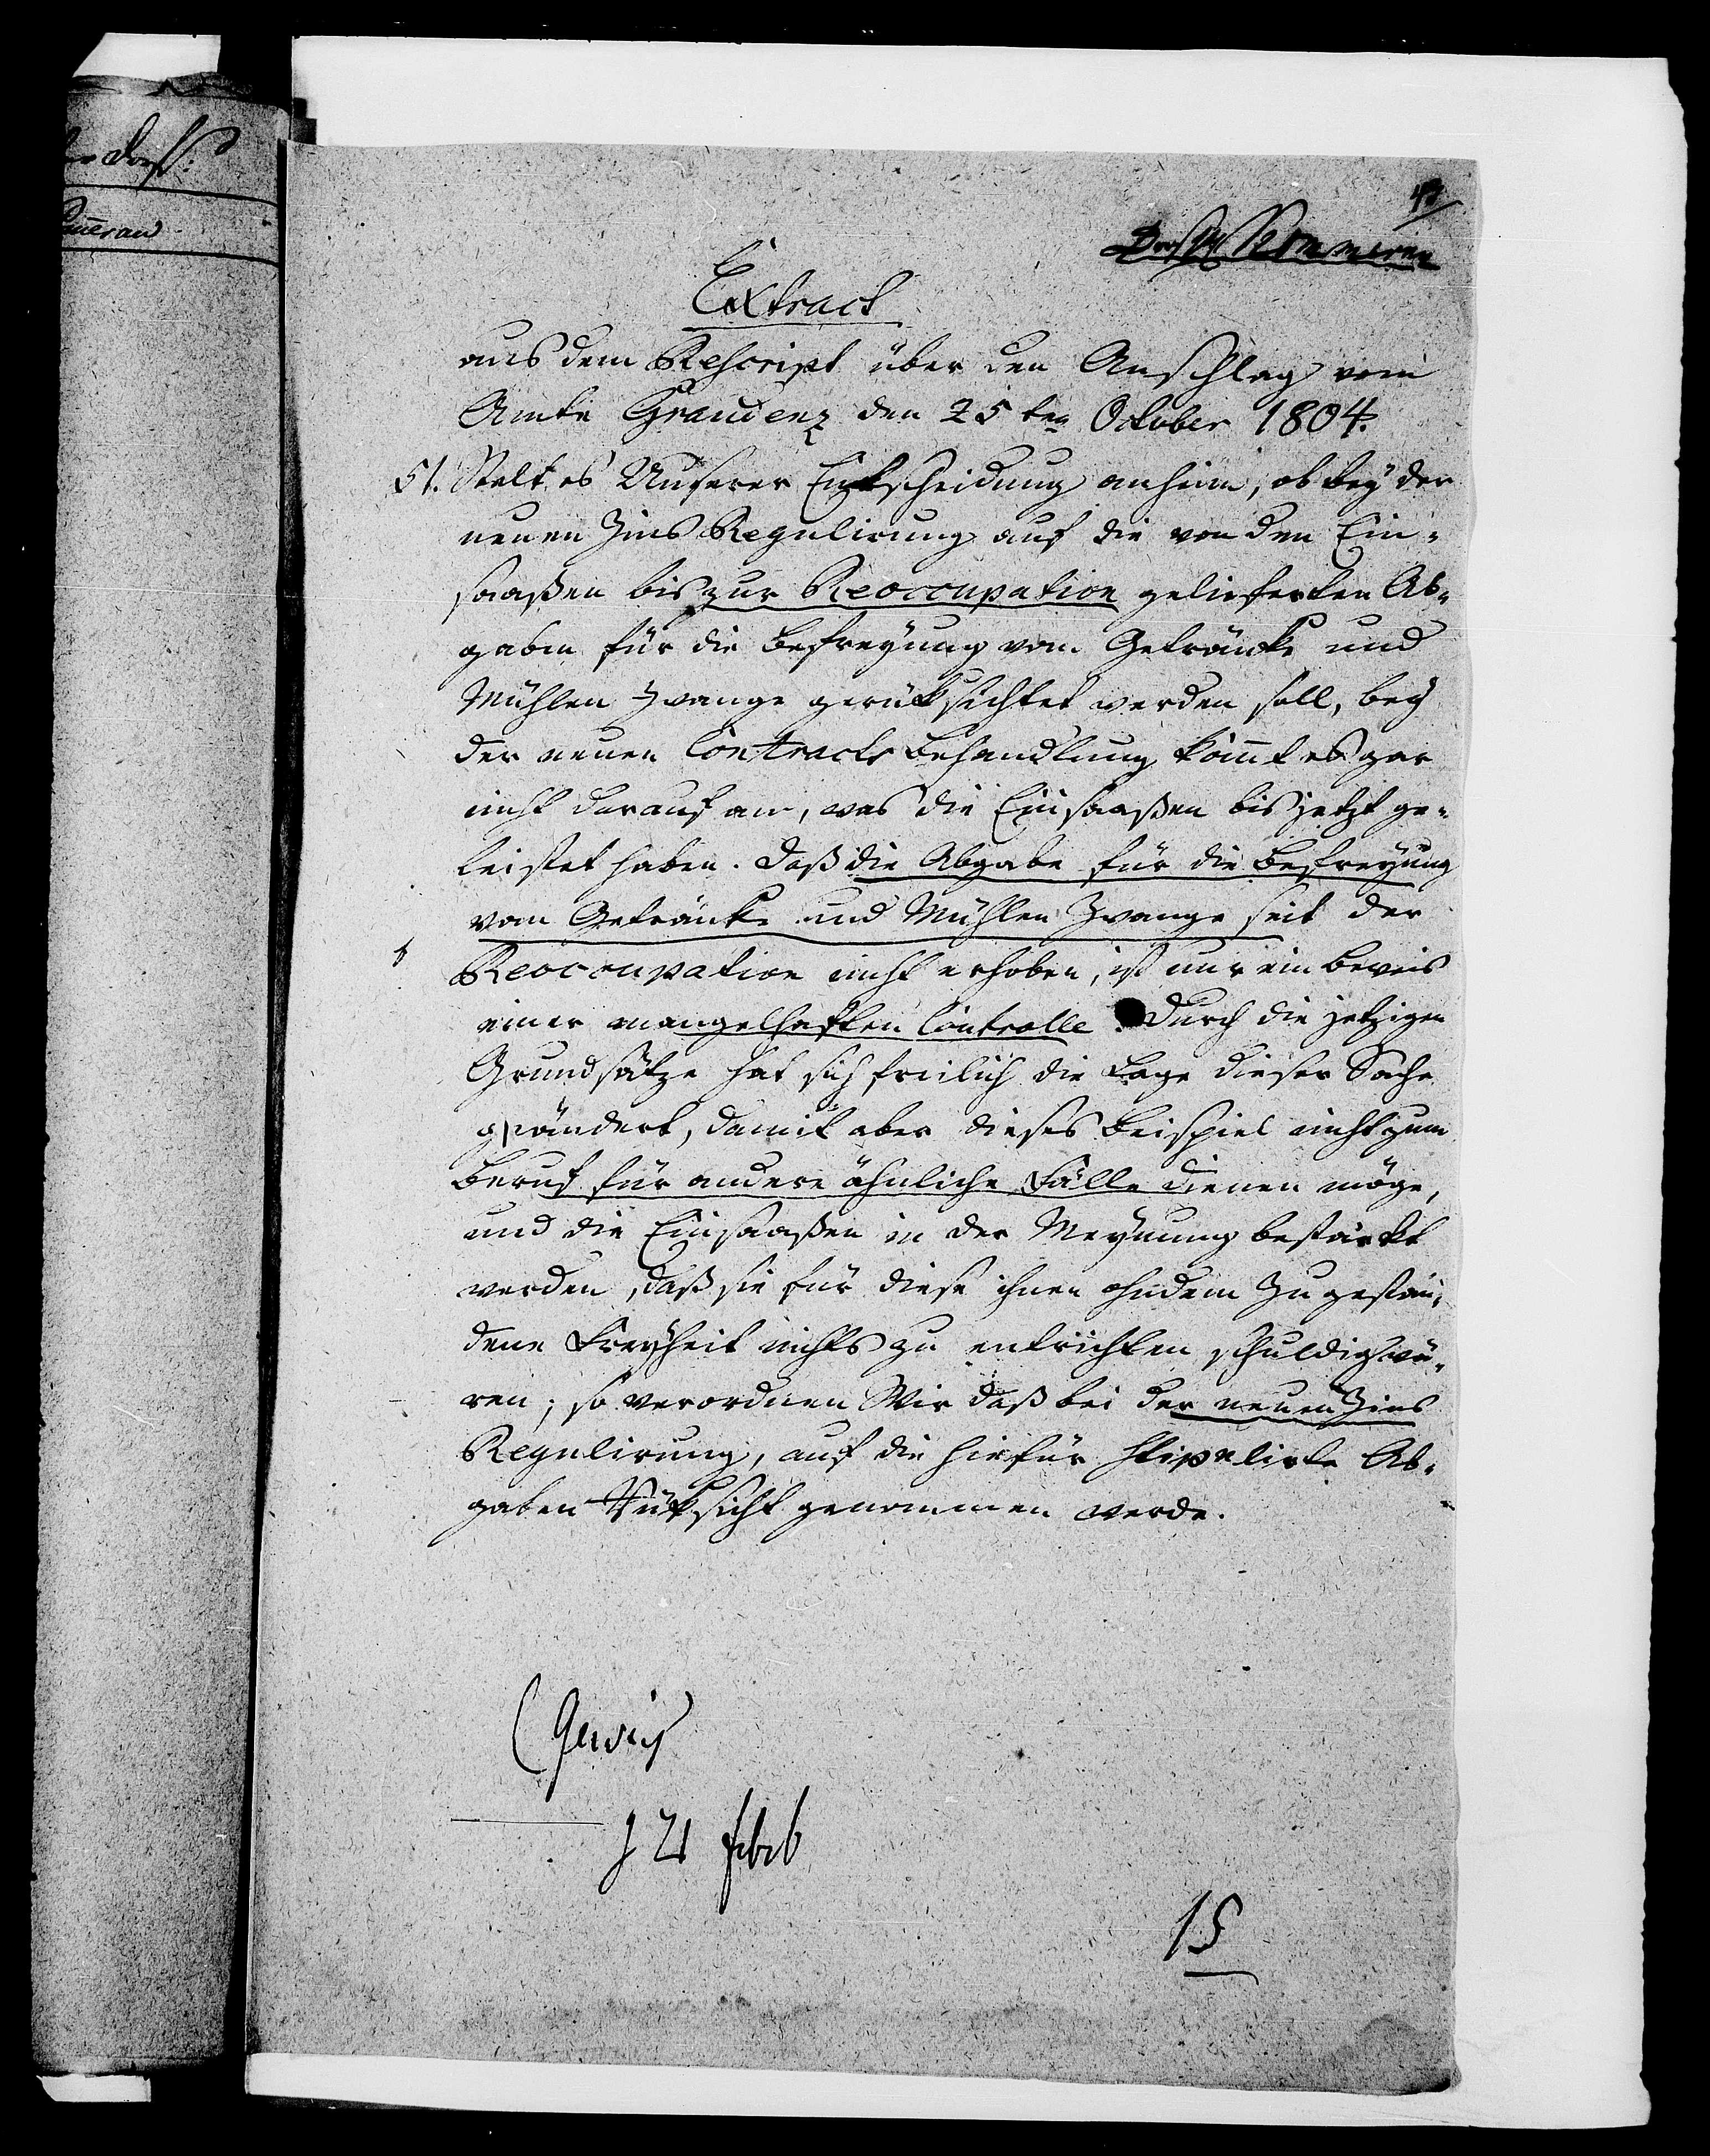 Dorff Kommerau
Extract
aus dem Rescript über den Anschlag vom
Amte Graudenz den 25ten October 1804.
51. Stelt es Unserer Entscheidung anheim, ob bey der
neuen Zins Regulirung auf die von den Ein-
saaßen bis zur Reoccupation gelieferten Ab-
gaben für die Befreyung vom Getränke und
Mühlen Zwange gerücksichtet werden soll, bey
der neuen Contracts Behandlung kömt es gar
nicht darauf an, was die Einsaaßen bis jetzt ge-
leistet haben. Daß die Abgabe für die Befreyung
vom Getränke und Mühlen Zwange seit der
Reoccupation nicht erhoben, ist nur ein Beweis
einer mangelhaften Controlle. Durch die jetzigen
Grundsätze hat sich freilich die Lage dieser Sache
geändert, damit aber dieses Beispiel nicht zum
Beruf für andere ähnliche Fälle dienen möge,
und die Einsaaßen in der Meynung bestärkt
werden, daß sie für diese ihnen ehedem zugestan-
dene Freyheit nichts zu entrichten schuldig wä-
ren; so verordnen Wir daß bei der neuen Zins
Regulirung, auf die hierfür stipulirte Ab-
gaben Rücksicht genommen werde.
15